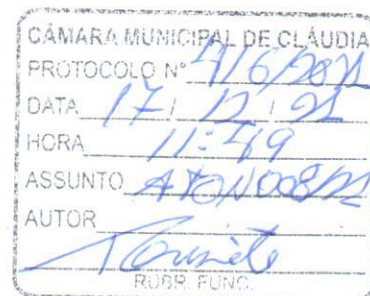 CÂMARA MUNICIPAL DE CLÁUDIA
PROTOCOLO Nº 416/2021
DATA 17/12/21
HORA 11:49
ASSUNTO ATO Nº 008/21
AUTOR
RUBR. FUNC.